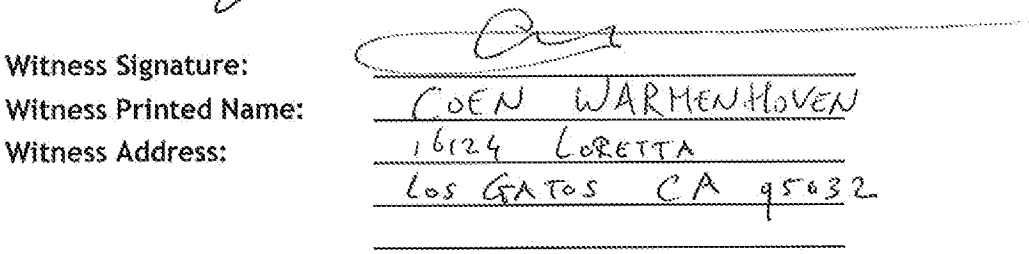 Witness Signature:
Witness Printed Name: COEN WARMENHOVEN
Witness Address: 16124 LORETTA
LOS GATOS CA 95032